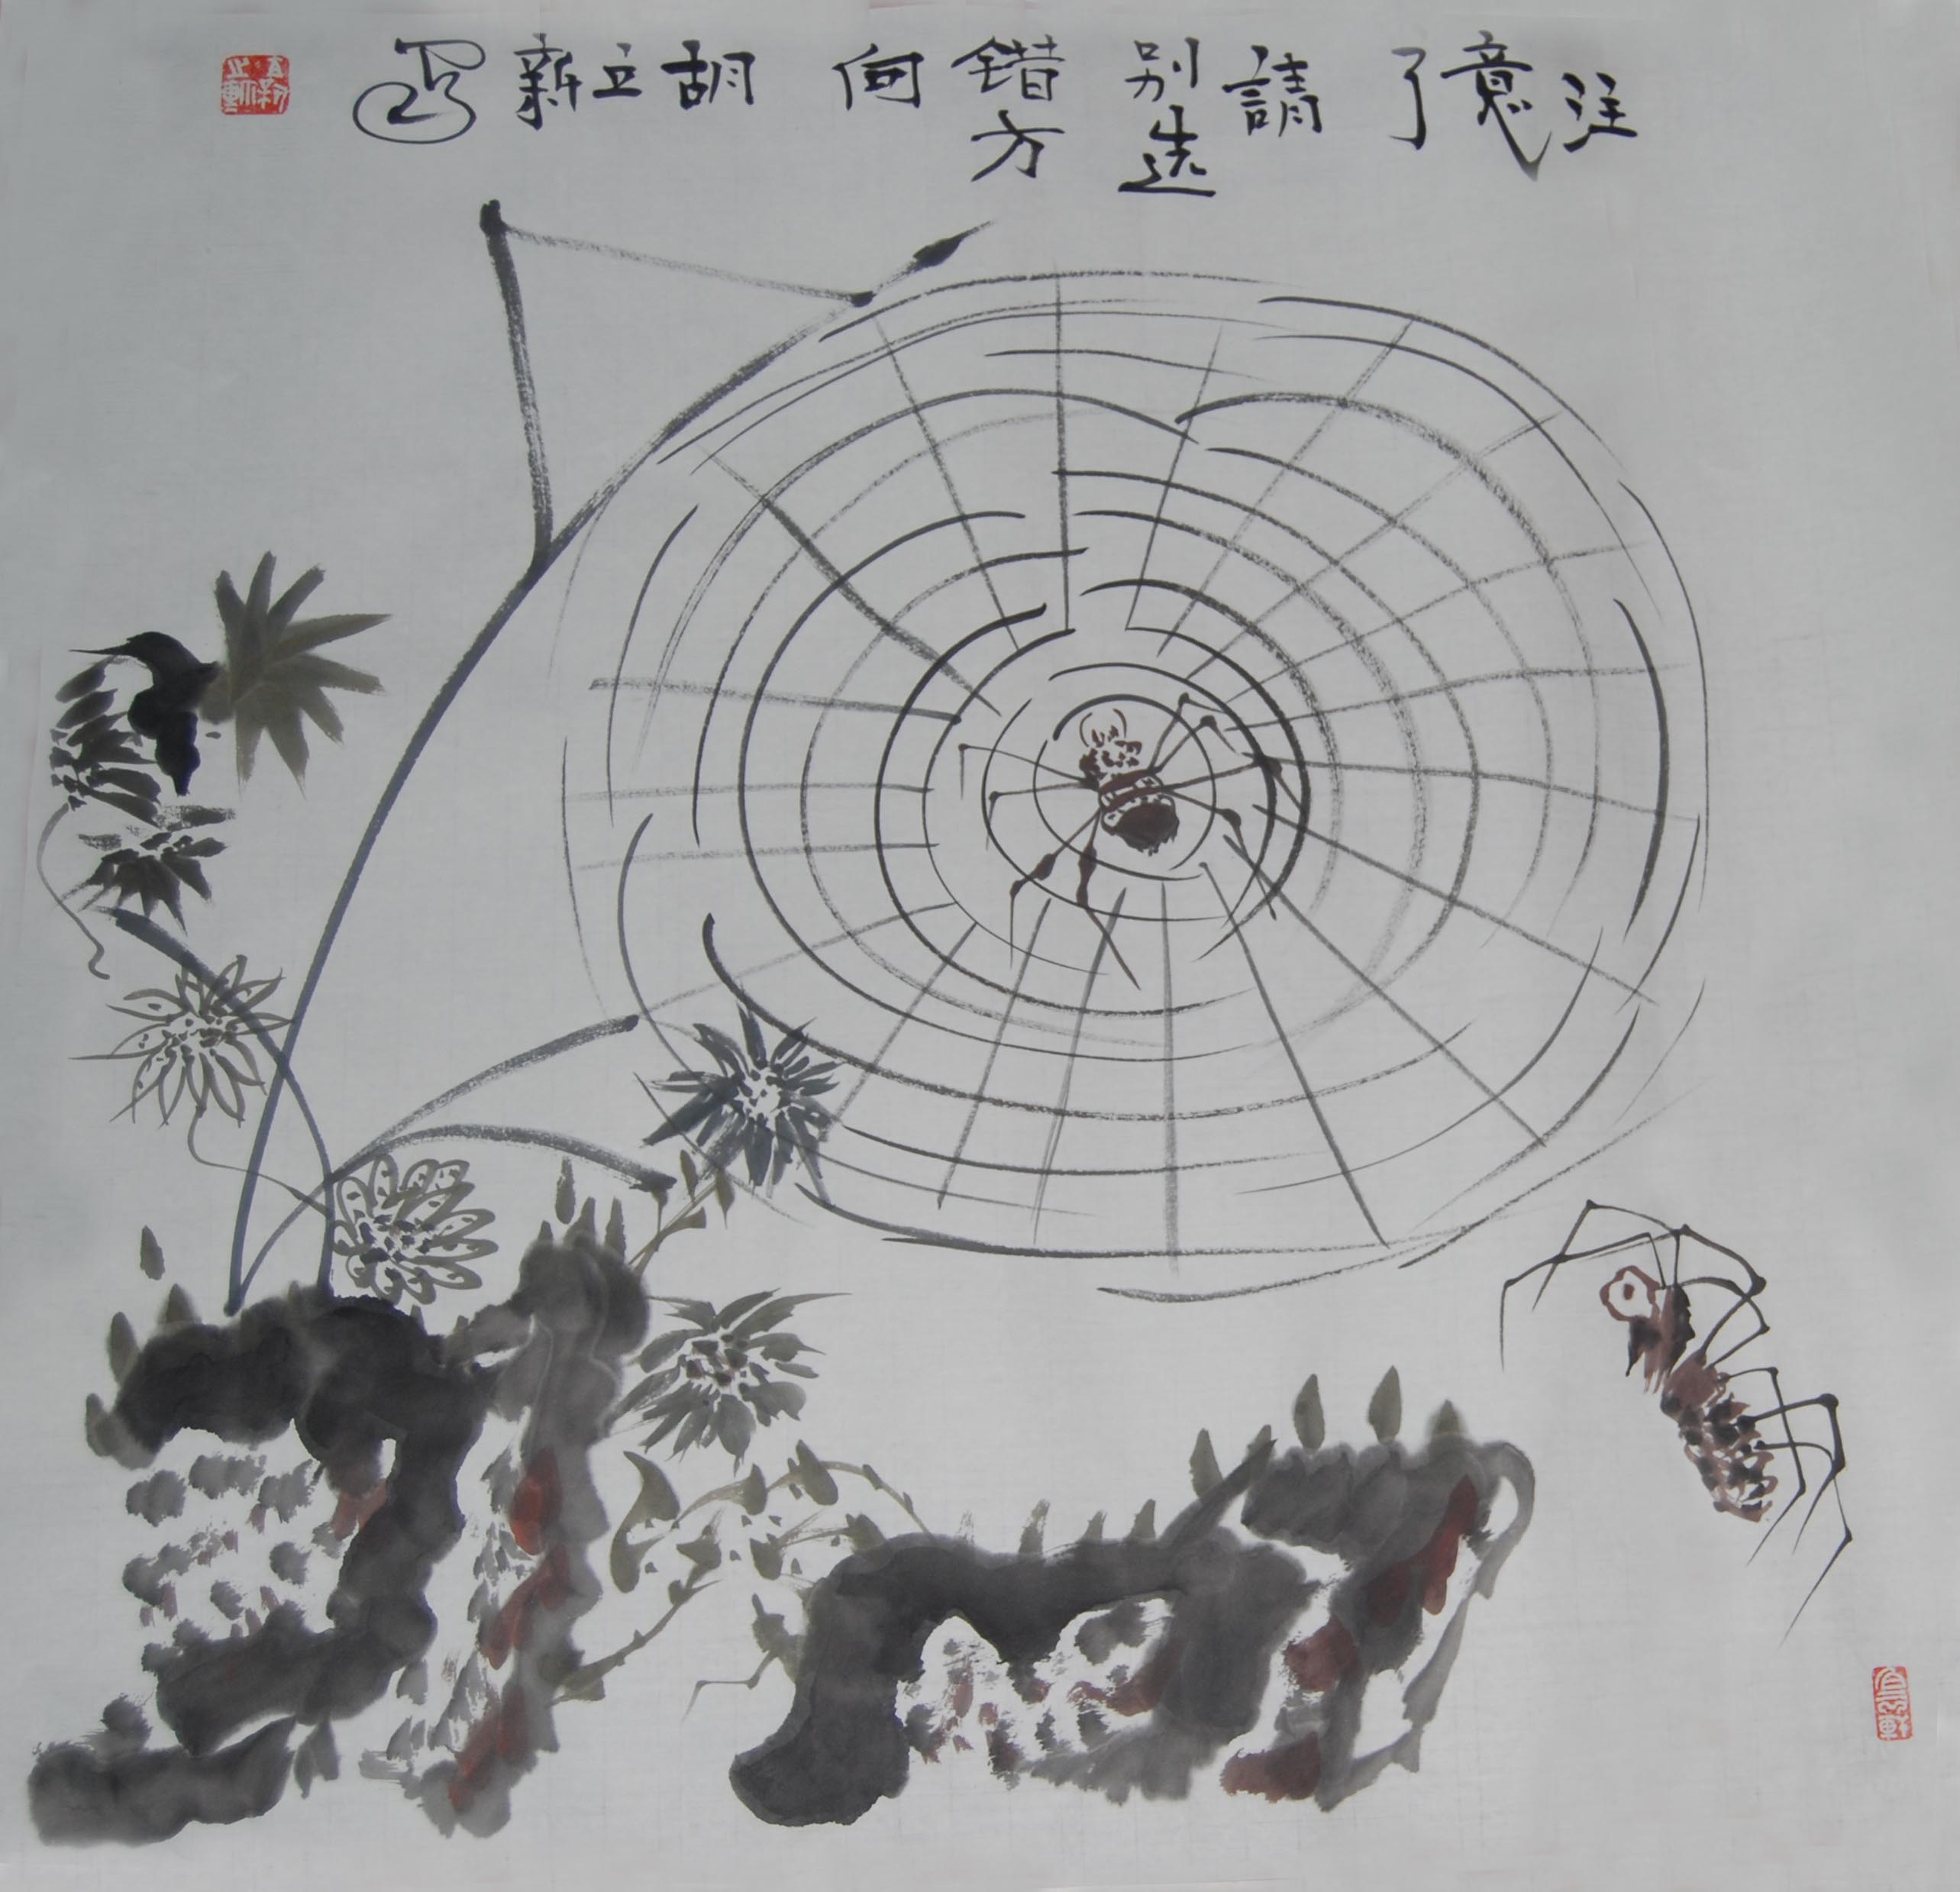 注意了請别选錯方向胡立新寫